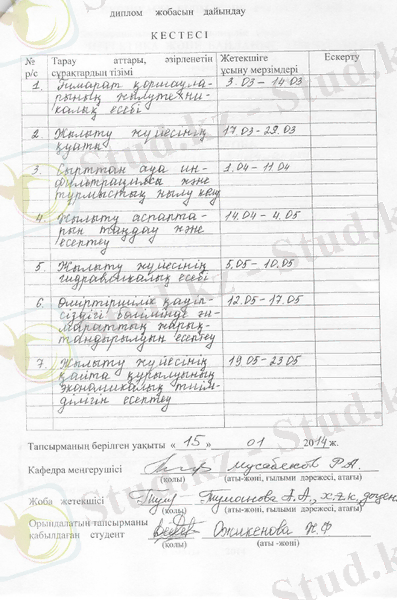 диплом жобасын дайындау
КЕСТЕСІ
№ р/с Тарау аттары, әзірленетін сұрақтардың тізімі Жетекшіге ұсыну мерзімдері Ескерту
1. Ғимарат қоршаула- 3.03 – 14.03
рының жылутехни-
калық есебі
2. Жылыту жүйесінің 17.03 - 29.03
қуаты
3. Сырттан ауа ин- 1.04 – 11.04
фильтрациясы және
тұрмыстық жылу
4. Жылыту аспапта- 14.04 – 4.05
рын таңдау және
есептеу
5. Жылыту жүйесінің 5.05 – 10.05
гидравликалық есебі
6. Өміртіршілік қауіп- 12.05 – 17.05
сіздігі бөлімінде ғи-
мараттың жарық-
тандырылуын есептеу
7. Жылыту жүйесінің 19.05 – 23.05
қайта құрылуының
экономикалық тиім-
ділігін есептеу
Тапсырманың берілген уақыты « 15 » 01 2014 ж.
Кафедра меңгерушісі Мусабеков Р.А.
(қолы) (аты-жөні, ғылыми дәрежесі, атағы)
Жоба жетекшісі Туманова А.А., х.ғ.к, доцен
(қолы) (аты-жөні, ғылыми дәрежесі, атағы)
Орындалатын тапсырманы
қабылдаған студент Ожикенова К.Ф
(қолы) (аты -жөні)
Stud.kz - Stud.kz